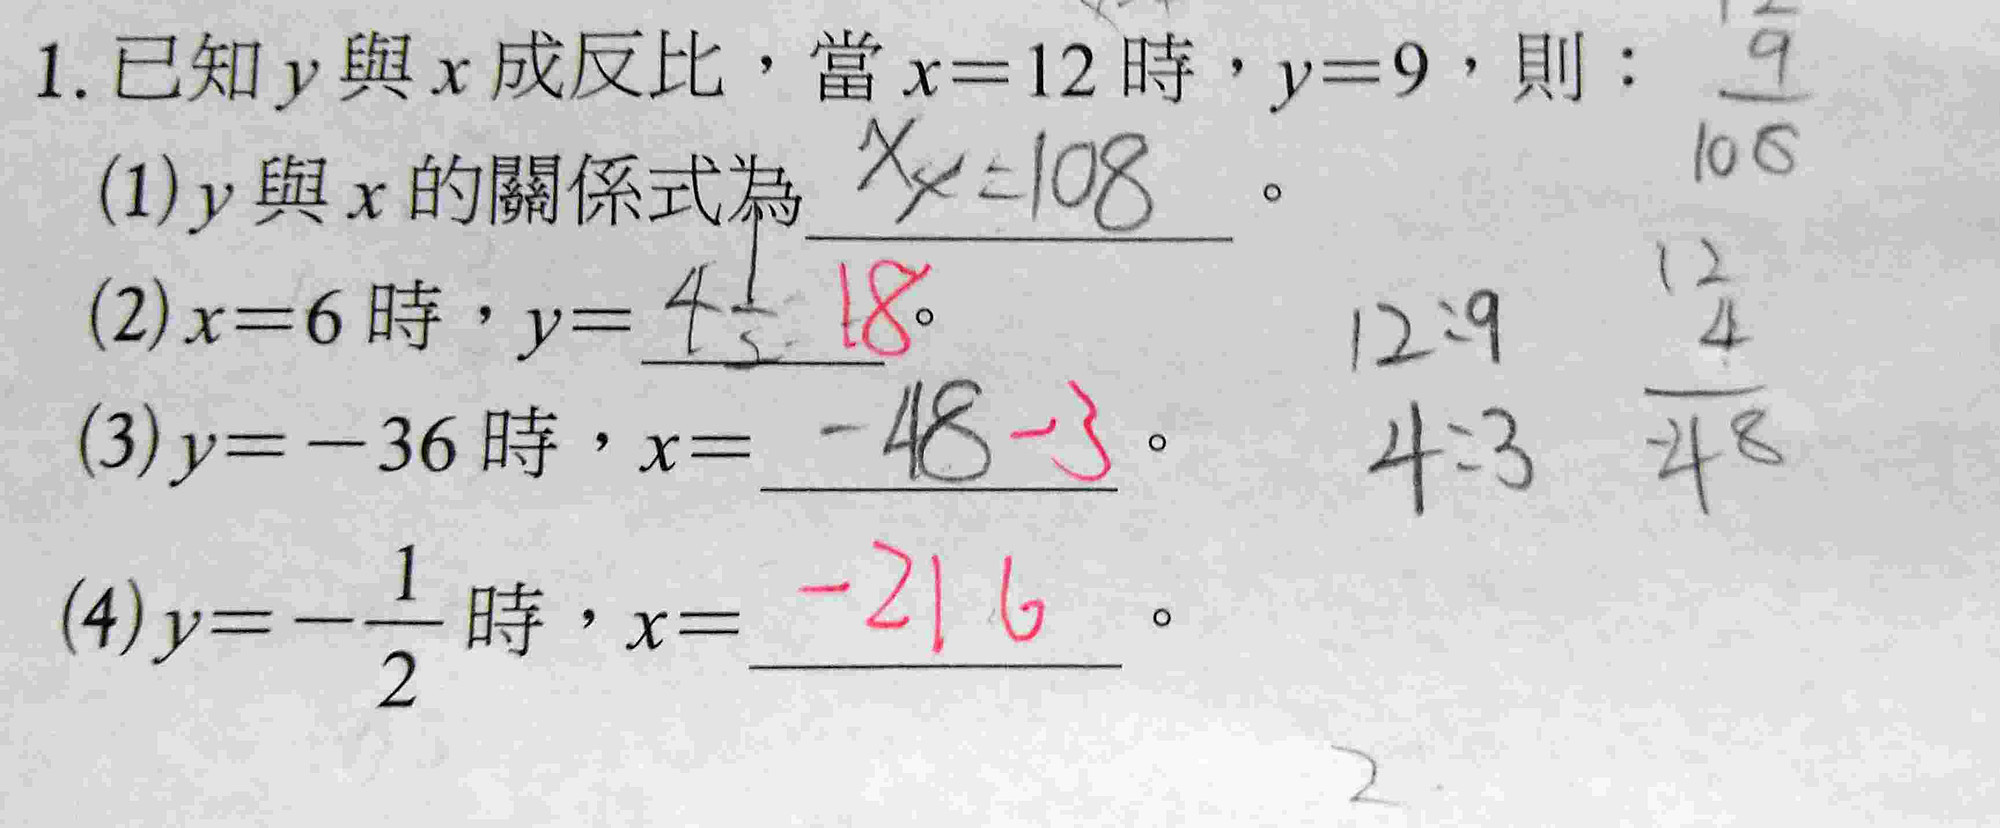 1. 已知 y 與 x 成反比，當 x=12 時，y=9，則：
9
108
(1) y 與 x 的關係式為 xy=108 。
(2) x=6 時，y= 4 1/2 18。
12:9
12
4
(3) y=－36 時，x= -48 -3 。
4:3
-48
(4) y=－1/2 時，x= -216 。
2